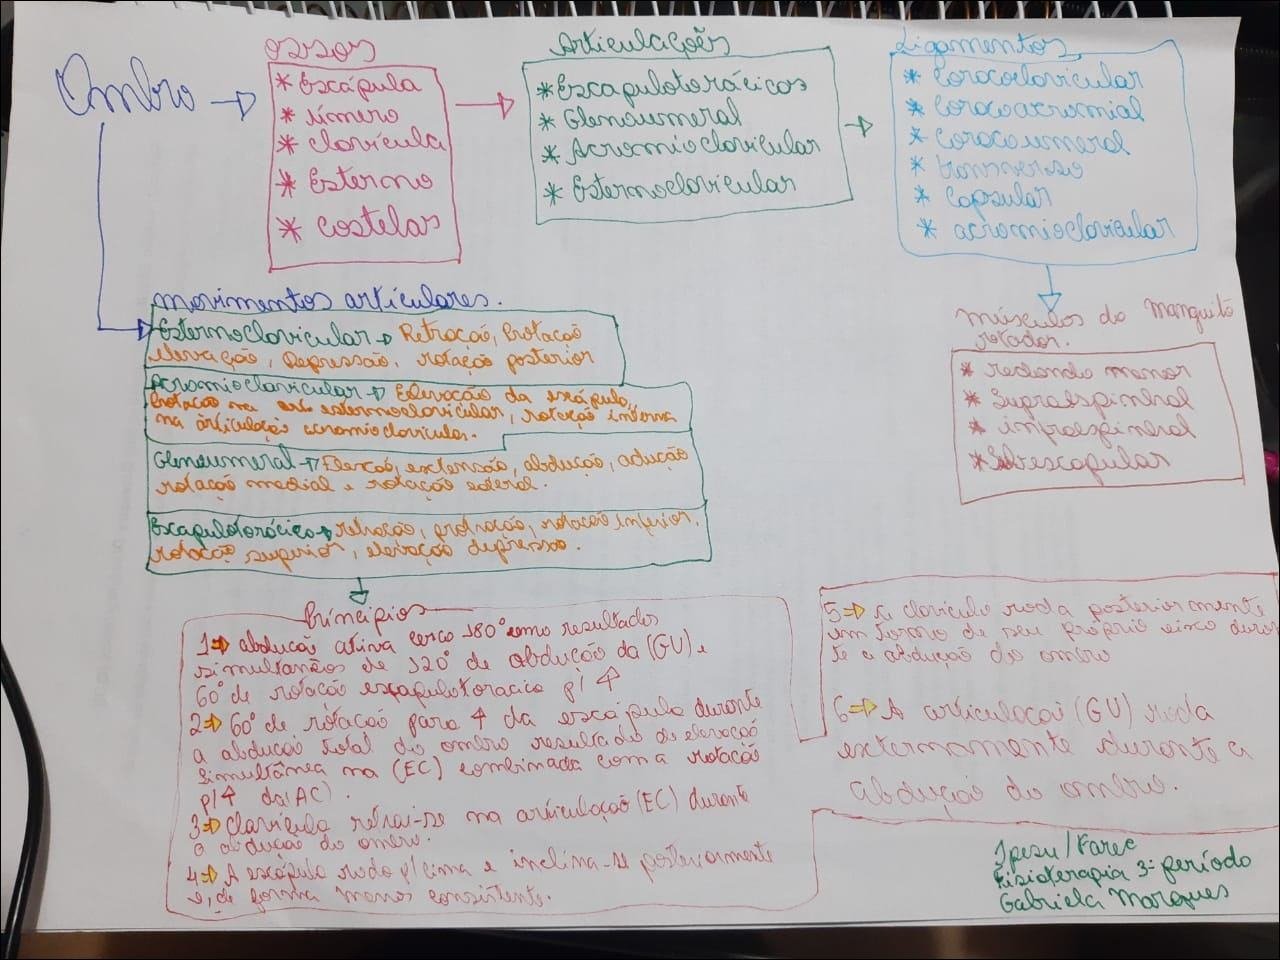 Ombro
ossos
* Escápula
* úmero
* clavícula
* Esterno
* costelas
Articulações
* Escapulotorácicos
* Glenoumeral
* Acromioclavicular
* Esternoclavicular
Ligamentos
* Coracoclavicular
* Coracoacromial
* Coracoumeral
* transverso
* Capsular
* acromioclavicular
músculos do Manguito
rotador.
* redondo menor
* Supraespinhal
* infraespinhal
* Subescapular
movimentos artículares.
Esternoclavicular → Retração, Protação
elevação, Depressão, rotação posterior
Acromioclavicular → Elevação da escápula,
Protação na art. esternoclavicular, rotação interna
na àrticulação acromioclavicular.
Glenoumeral → extensão, abdução, adução
rotação medial e rotação lateral.
Escapulotorácica → retração, protração, rotação inferior,
rotação superior, elevação depressão.
Princípios
1⇒ abdução ativa cerca 180° como resultados
simultanêos de 120° de abdução da (GU) e
60° de rotação escapulotoracica p/ ↑
2⇒ 60° de rotação para ↑ da escápula durante
a abdução total do ombro resultado de elevação
simultânea na (EC) combinada com a rotação
p/↑ da(AC).
3⇒ clavícula retrai-se na articulação (EC) durante
a abdução do ombro.
4⇒ A escápula roda p/cima e inclina-se posteriormente
e, de forma menos consistente.
5⇒ a clavícula roda posteriormente
em torno de seu próprio eixo duran-
te a abdução do ombro
6⇒ A articulaçaõ (GU) roda
externamente durante a
abdução do ombro.
Ipesu/Farec
Fisioterapia 3º período
Gabriela Marques